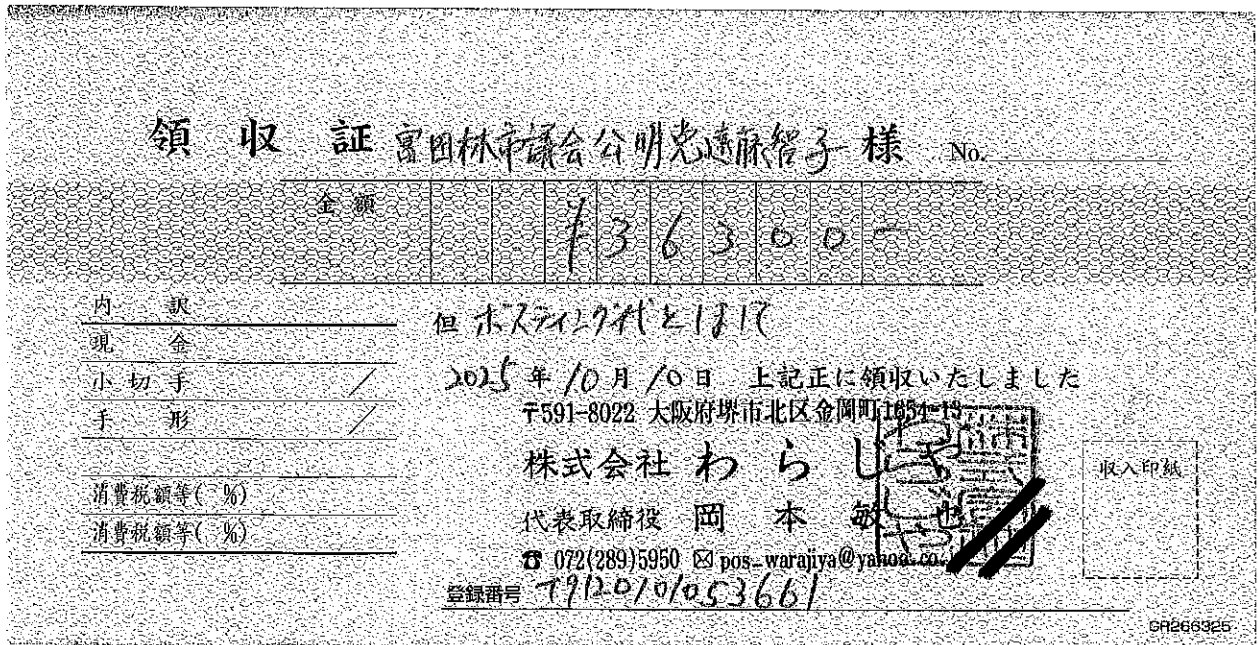 領収証 富田林市議会公明党遠藤智子 様 No.
金額 ¥36300-
内訳
現金
小切手 /
手形 /
消費税額等( %)
消費税額等( %)
但 ポスティング代として
2025年10月10日 上記正に領収いたしました
〒591-8022 大阪府堺市北区金岡町1654-13
株式会社 わらじや
代表取締役 岡本敏也
☎ 072(289)5950 ✉ pos_warajiya@yahoo.co.
登録番号 T9120101053661
収入印紙
GR266325